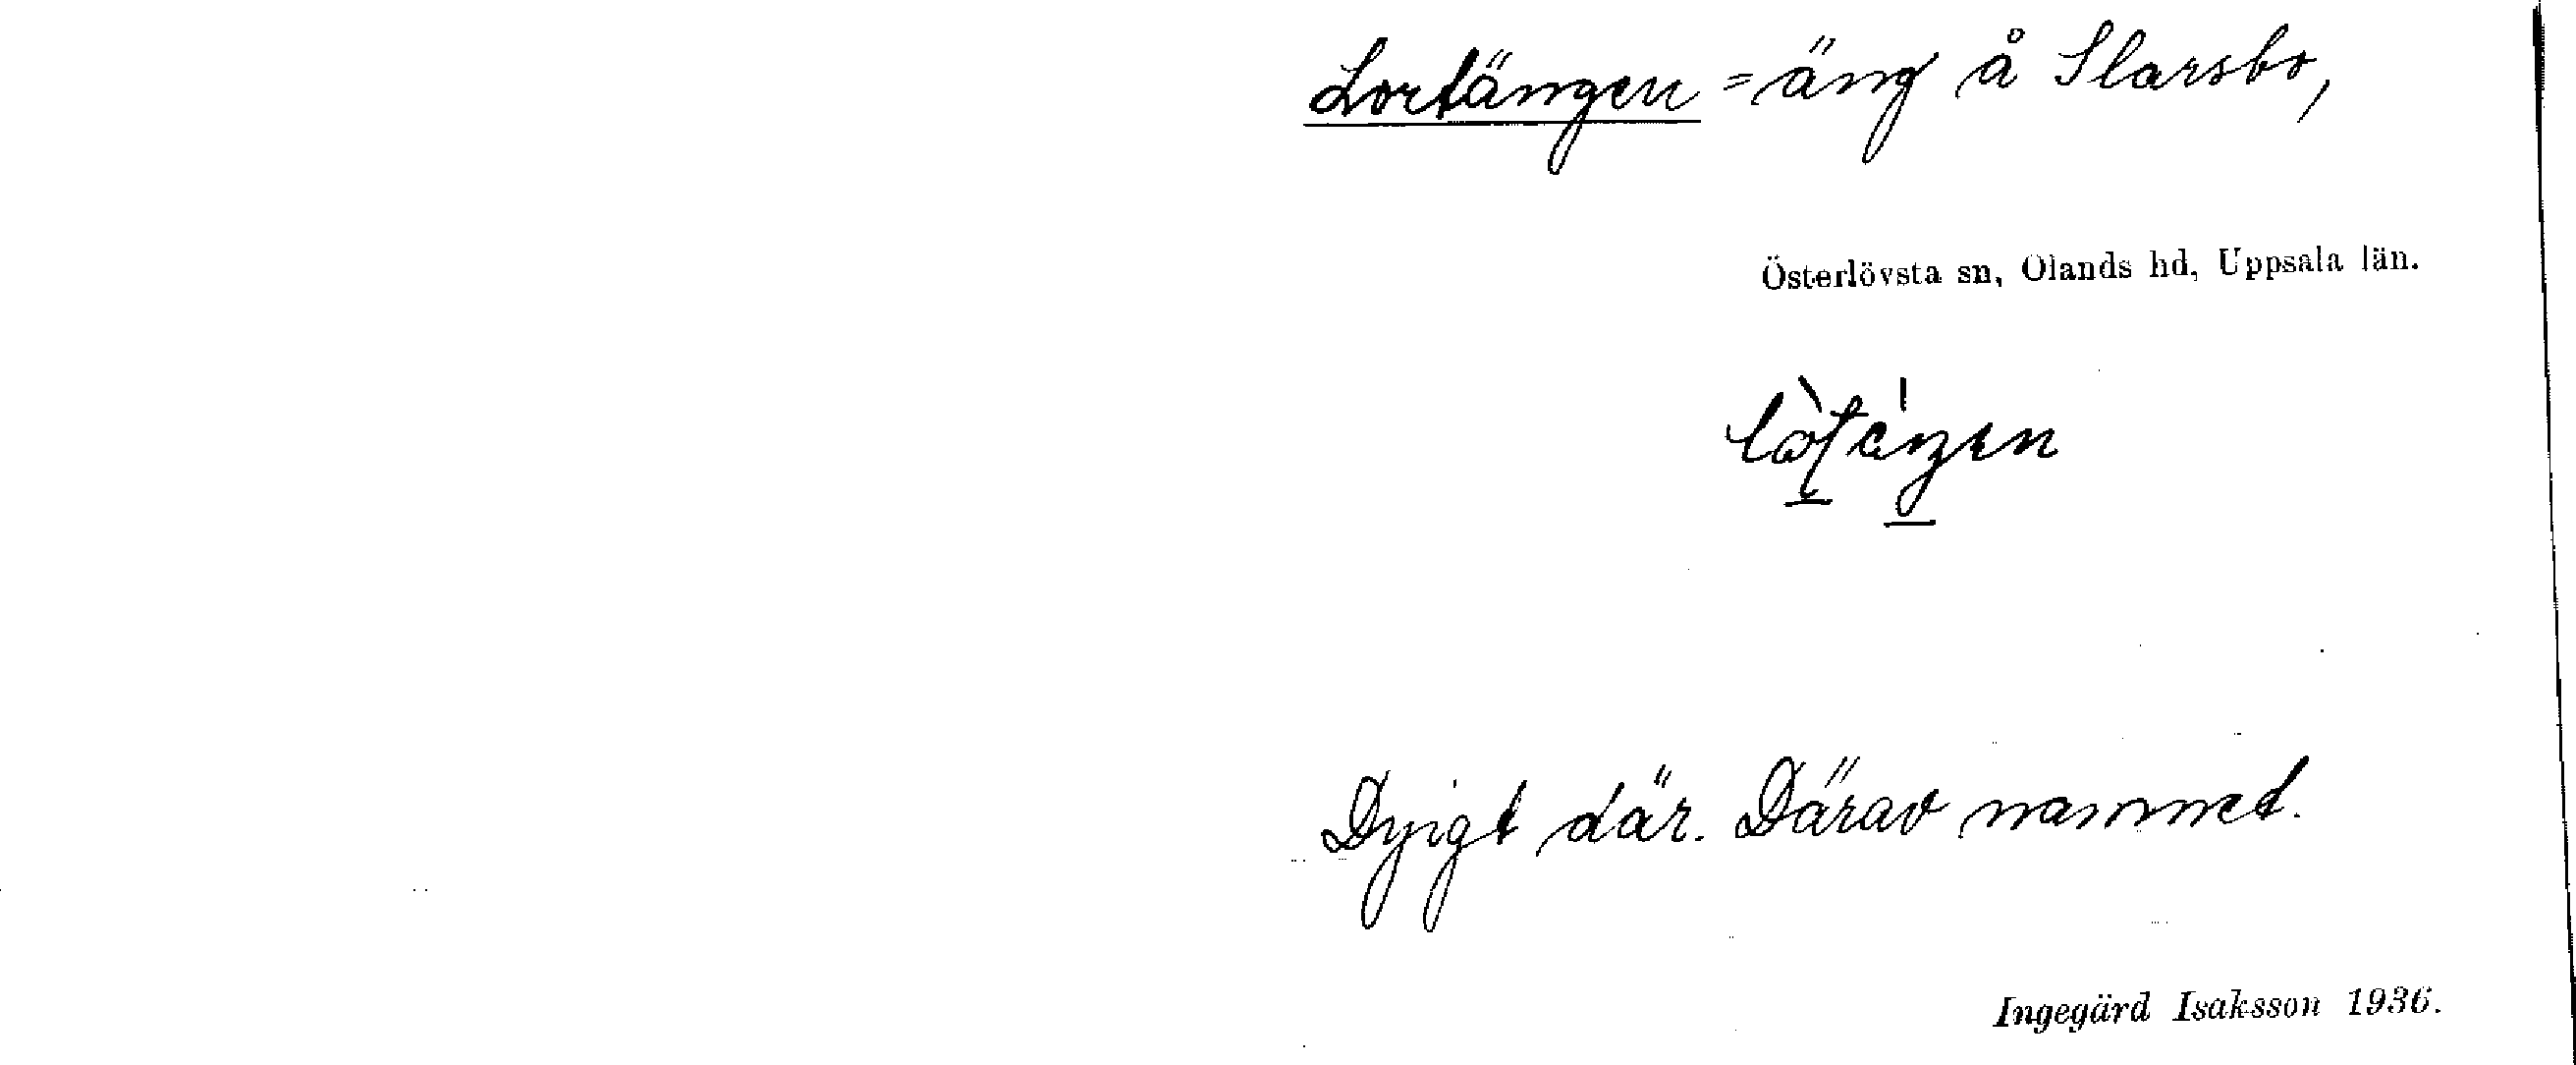 Lortängen = äng å Slarsbo,
Österlövsta sn, Olands hd, Uppsala län.
Dyigt där. Därav namnet.
Ingegärd Isaksson 1936.